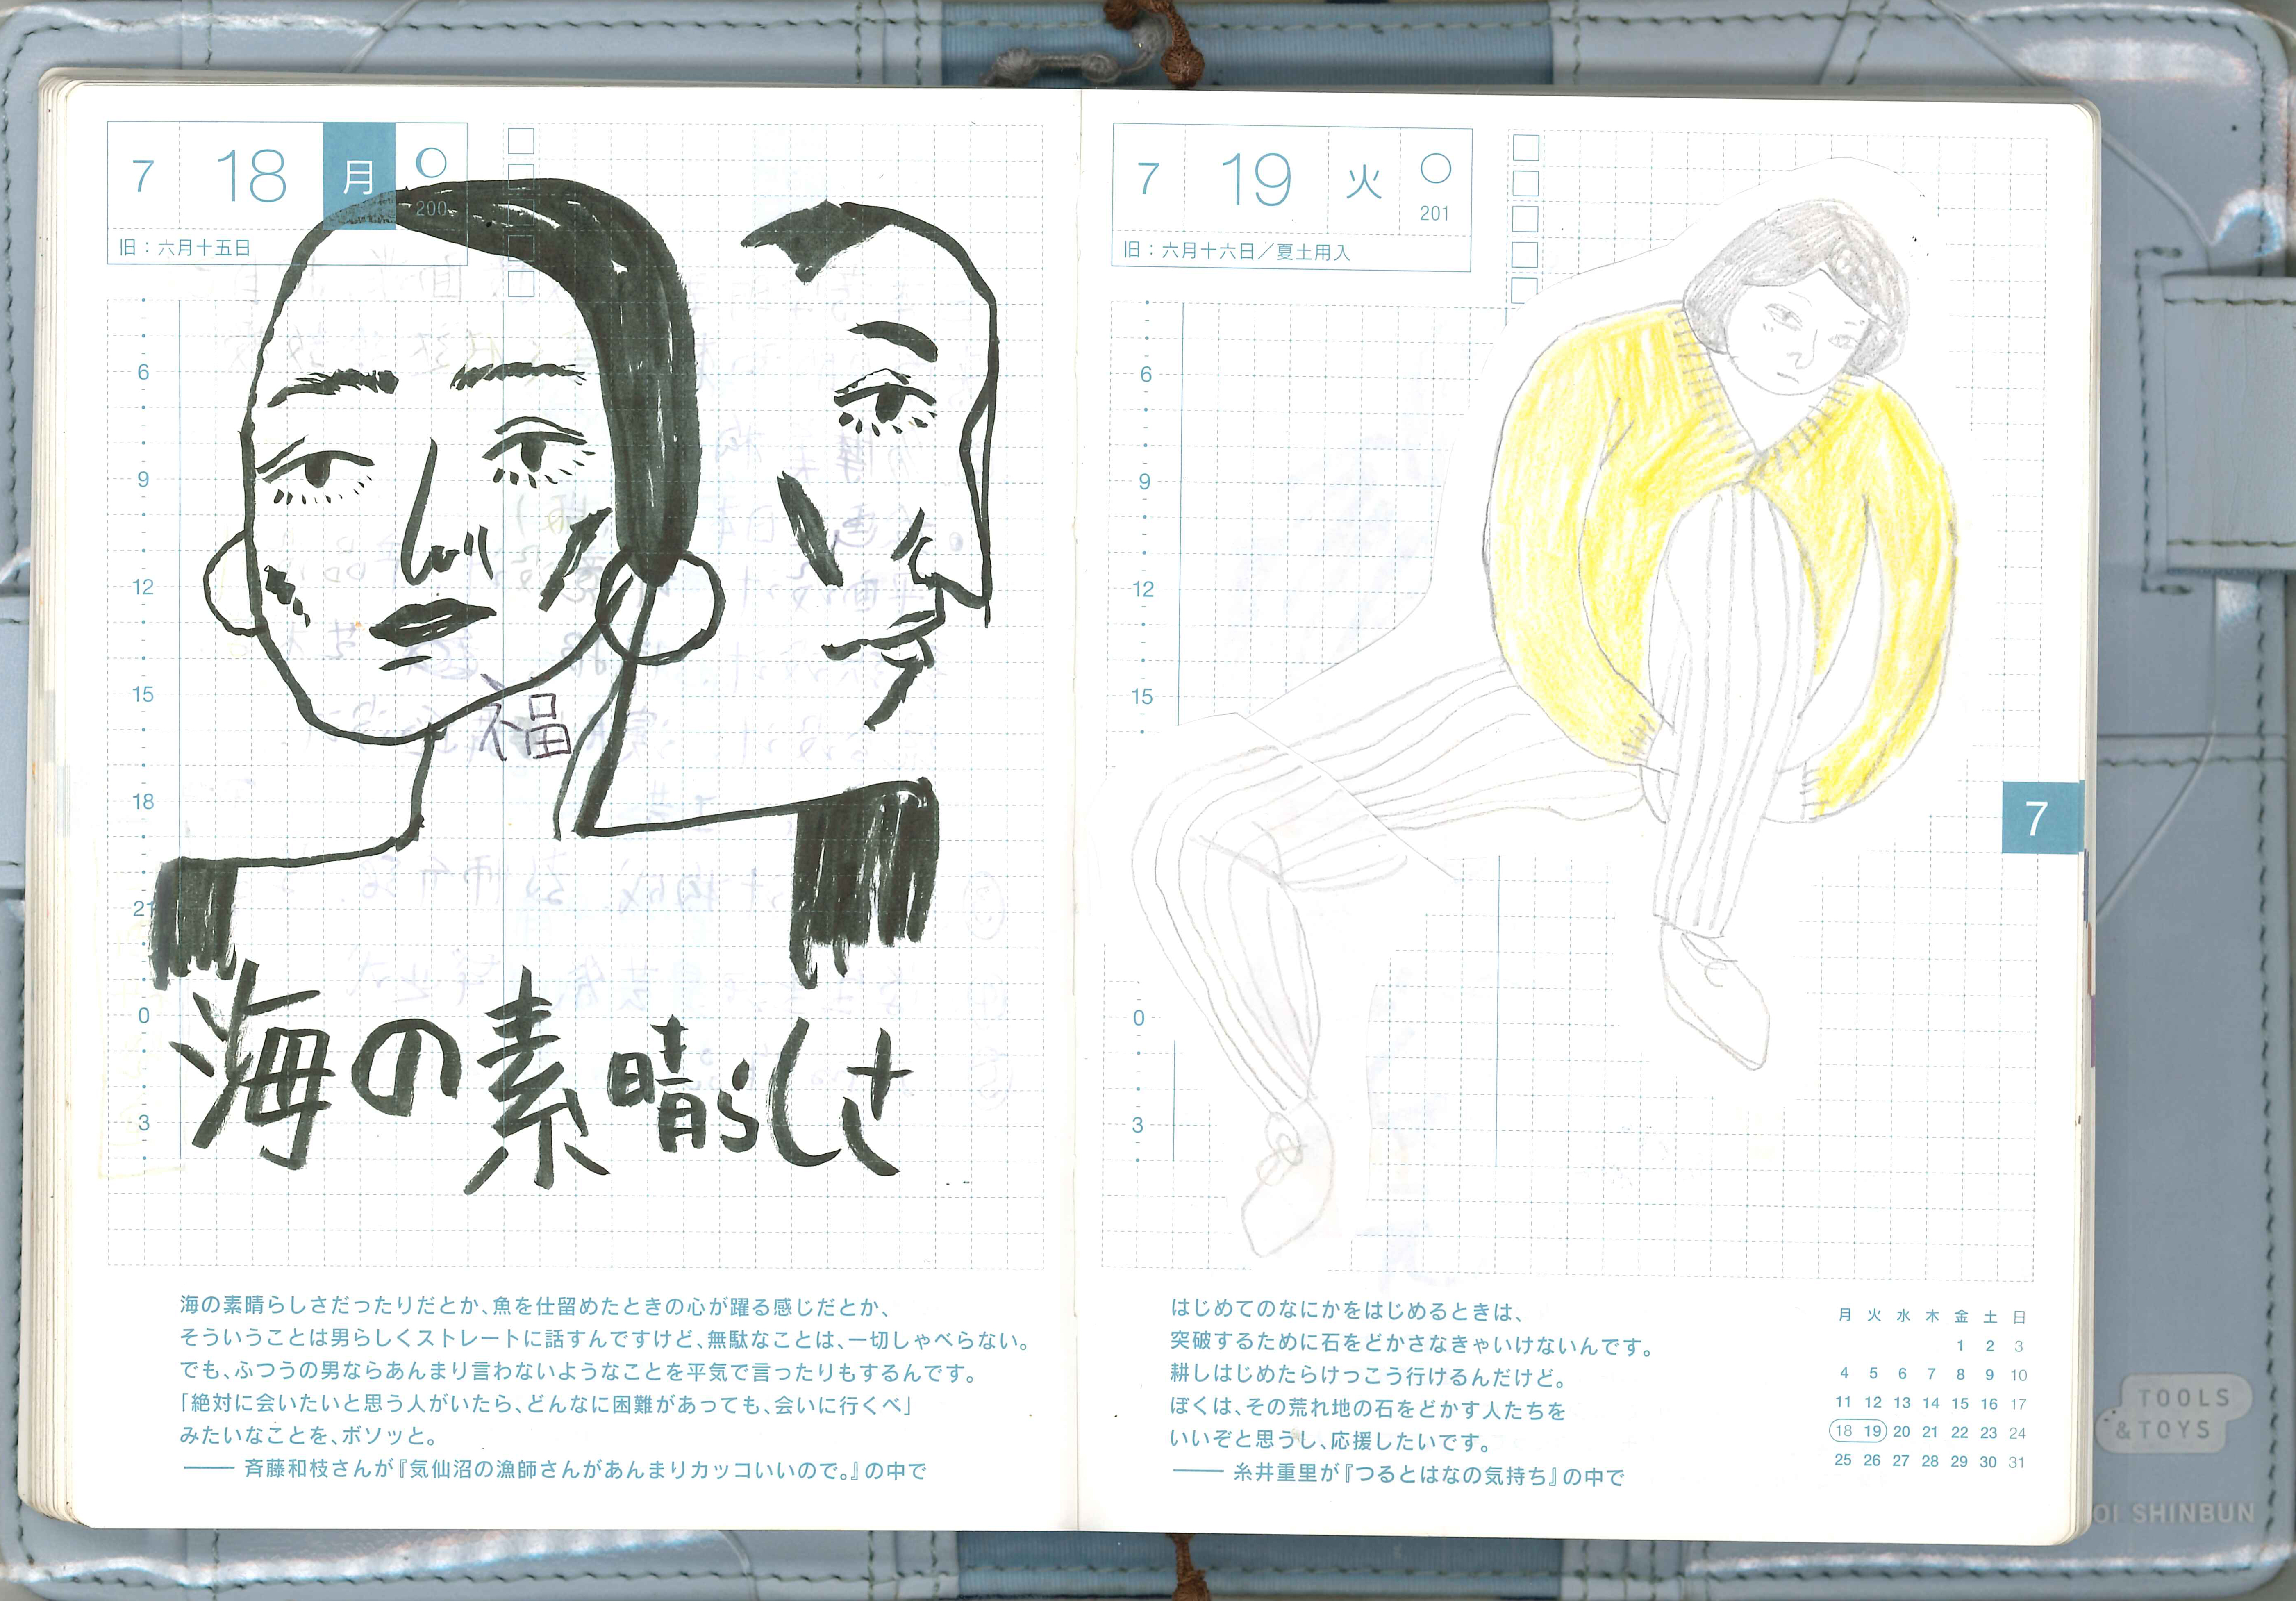 7 18 月
200
旧：六月十五日
6
9
12
15
18
21
0
3
福
海の素晴らしさ
海の素晴らしさだったりだとか、魚を仕留めたときの心が躍る感じだとか、
そういうことは男らしくストレートに話すんですけど、無駄なことは、一切しゃべらない。
でも、ふつうの男ならあんまり言わないようなことを平気で言ったりもするんです。
「絶対に会いたいと思う人がいたら、どんなに困難があっても、会いに行くべ」
みたいなことを、ボソッと。
── 斉藤和枝さんが『気仙沼の漁師さんがあんまりカッコいいので。』の中で
7 19 火
201
旧：六月十六日／夏土用入
6
9
12
15
0
3
7
はじめてのなにかをはじめるときは、
突破するために石をどかさなきゃいけないんです。
耕しはじめたらけっこう行けるんだけど。
ぼくは、その荒れ地の石をどかす人たちを
いいぞと思うし、応援したいです。
── 糸井重里が『つるとはなの気持ち』の中で
月 火 水 木 金 土 日
1 2 3
4 5 6 7 8 9 10
11 12 13 14 15 16 17
18 19 20 21 22 23 24
25 26 27 28 29 30 31
TOOLS
& TOYS
OI SHINBUN